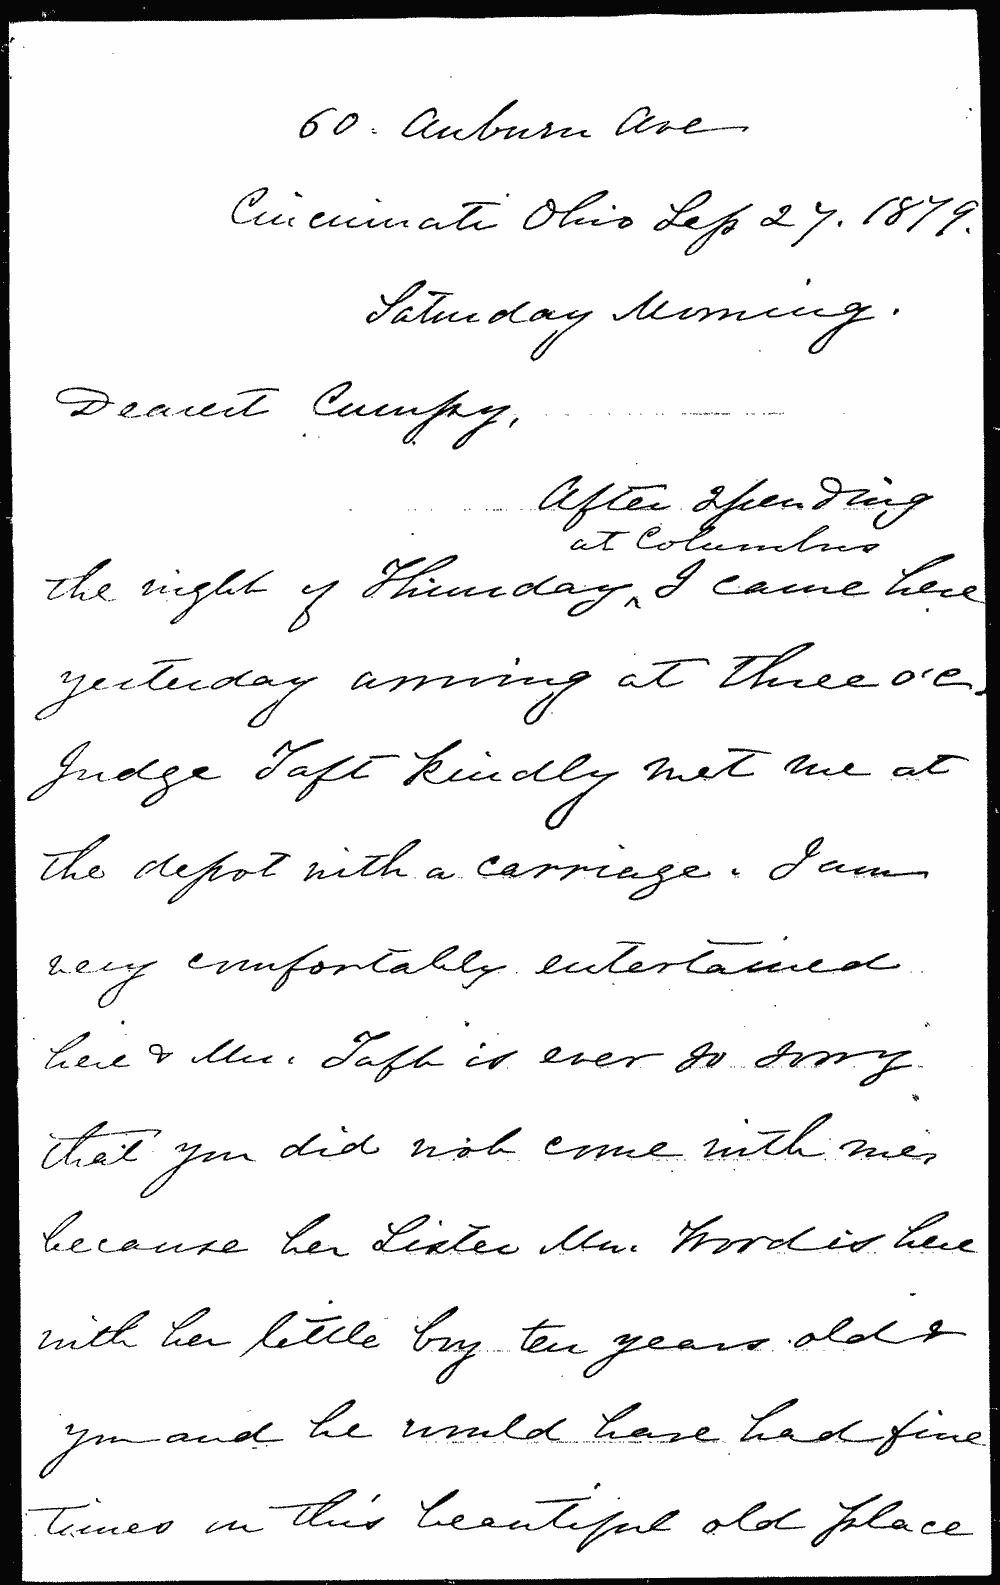 60. Auburn Ave
Cincinnati Ohio Sep 27. 1879.
Saturday Morning.
Dearest Cumpy,
After spending
at Columbus
the night of Thursday ^ I came here
yesterday arriving at three o'c.
Judge Taft kindly met me at
the depot with a carriage. I am
very comfortably entertained
here & Mrs. Taft is ever so sorry
that you did not come with me,
because her Sister Mrs. Wood is here
with her little boy ten years old &
you and he would have had fine
times on this beautiful old place